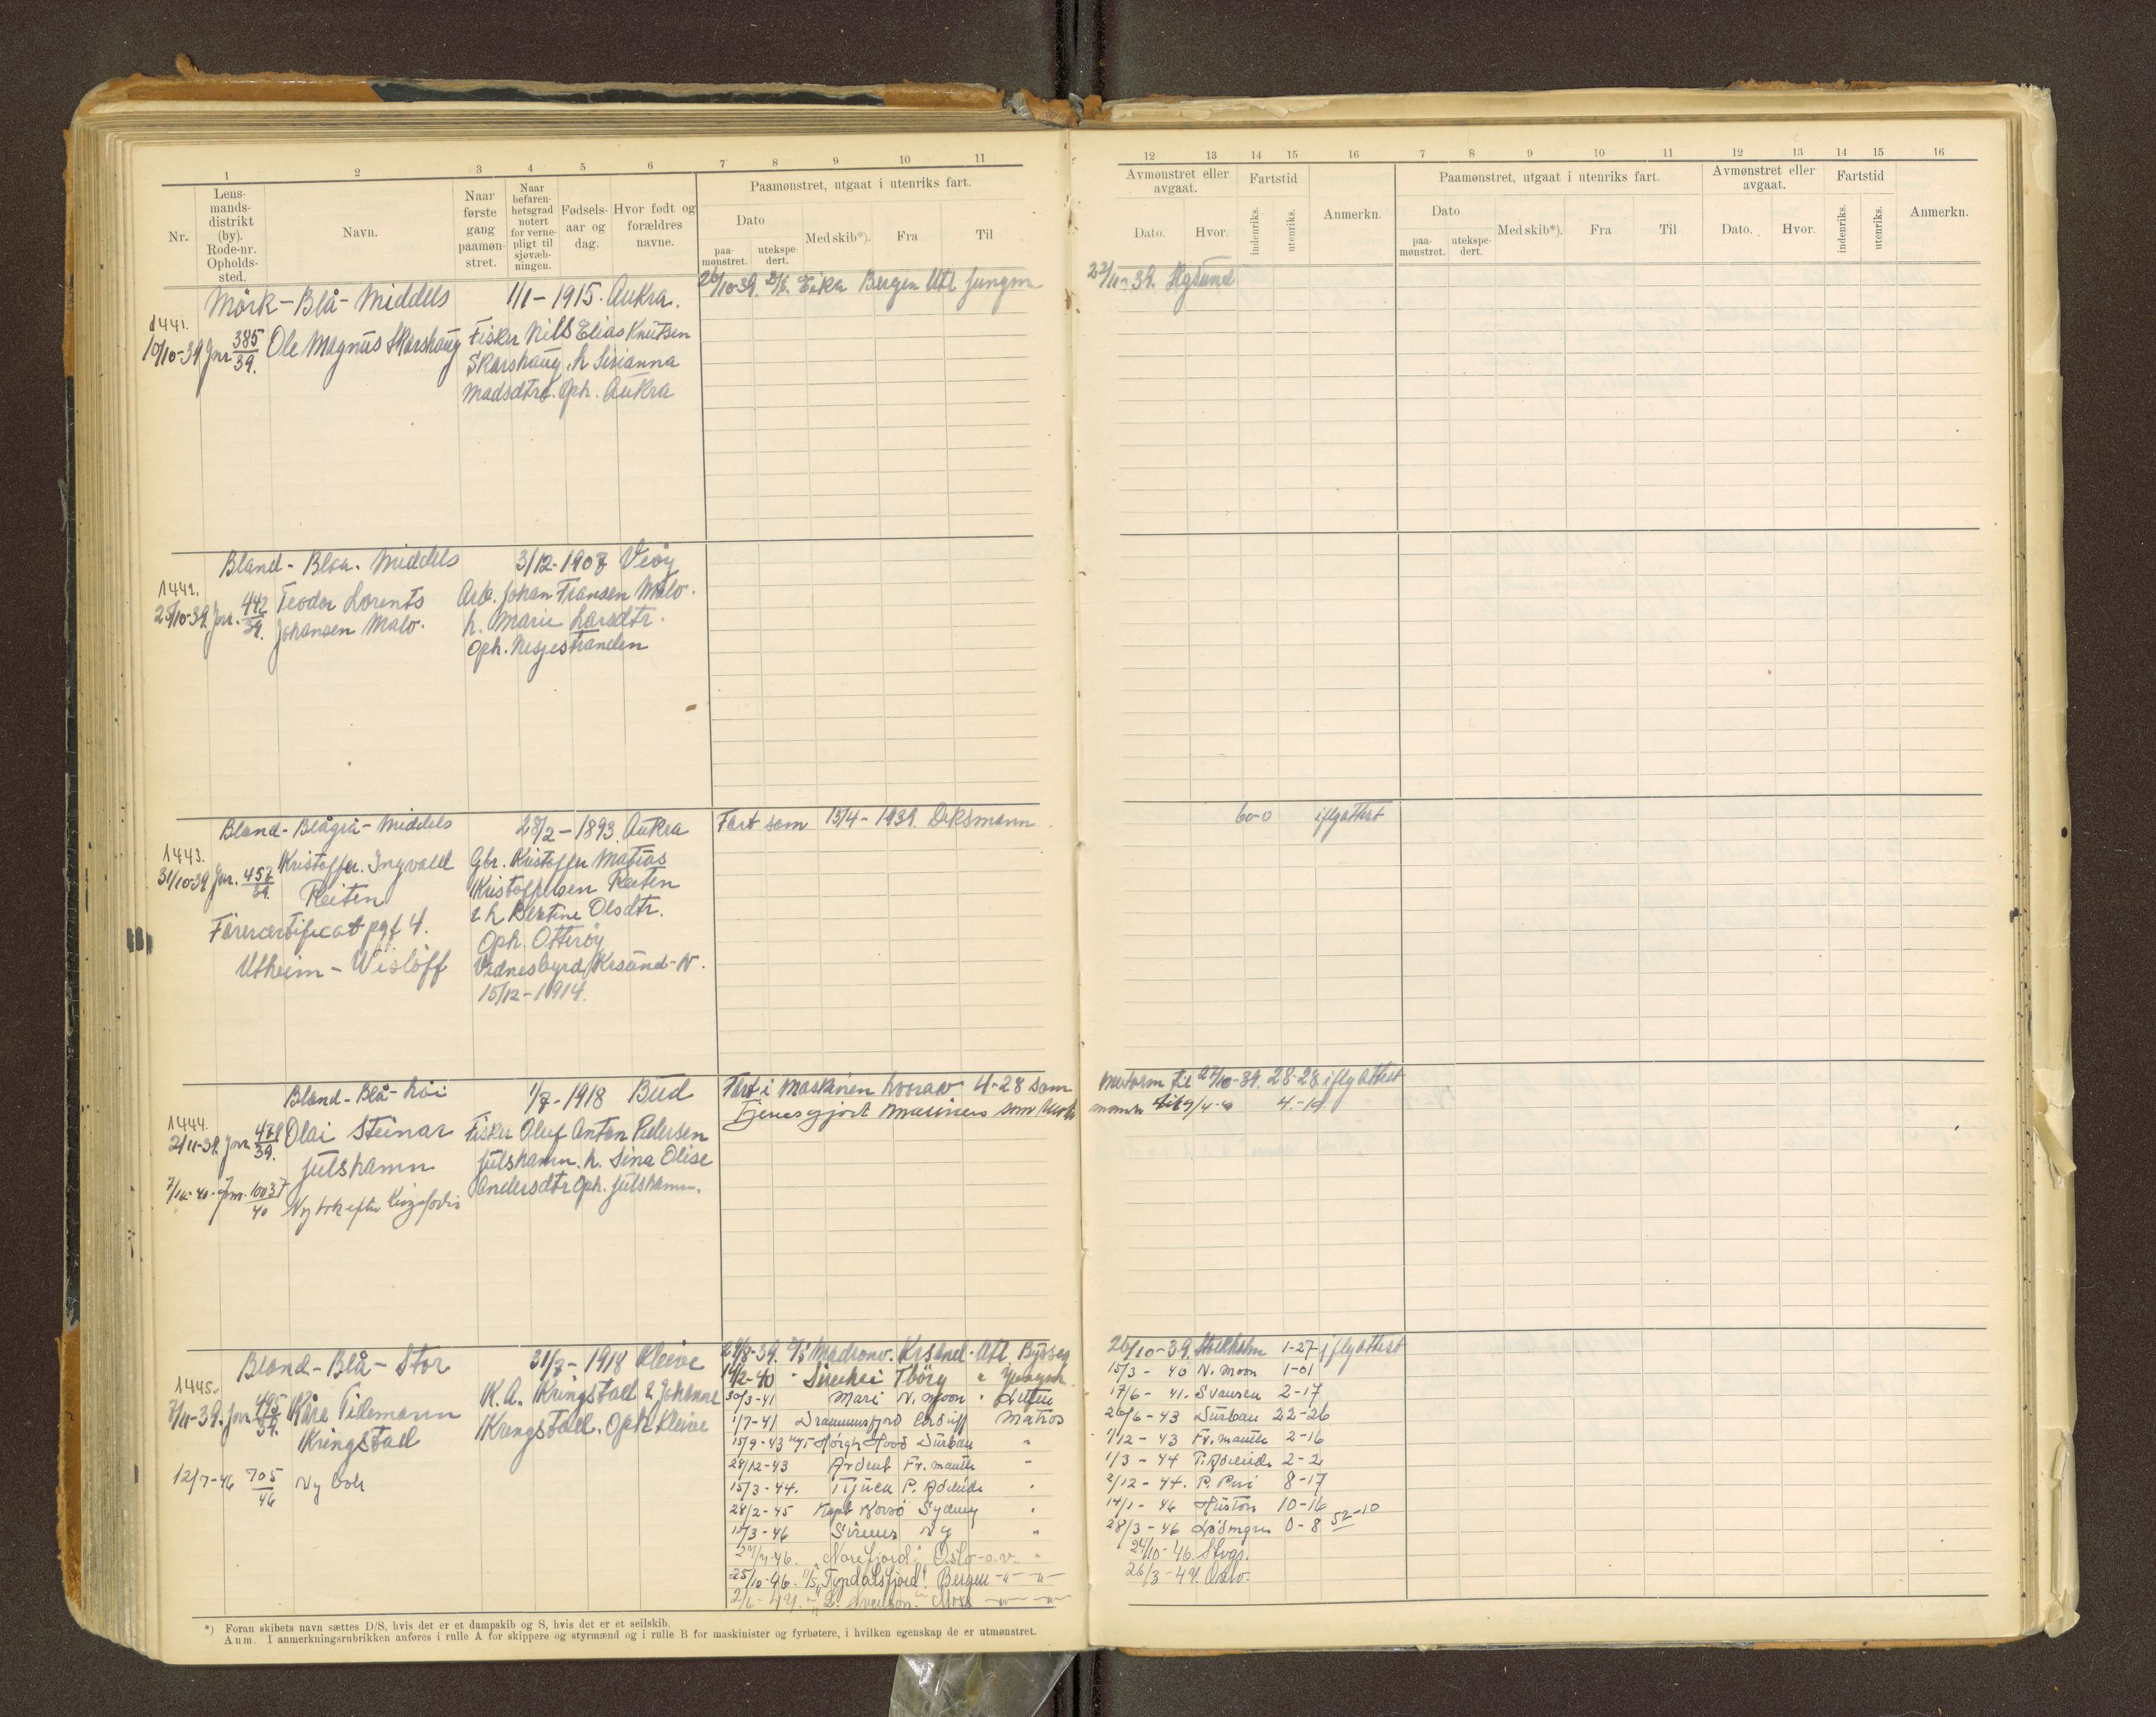 1 2 3 4 5 6 7 8 9 10 11
Nr. Lensmandsdistrikt (by). Rode-nr. Opholdssted. Navn. Naar første gang paamønstret. Naar befarenhetsgrad notert for vernepligt til sjøvæbningen. Fødselsaar og dag. Hvor født og forældres navne.
Paamønstret, utgaat i utenriks fart.
Dato paamønstret. utekspedert. Med skib*). Fra Til
12 13 14 15 16 7 8 9 10 11 12 13 14 15 16
Avmønstret eller avgaat. Fartstid Paamønstret, utgaat i utenriks fart. Avmønstret eller avgaat. Fartstid
Dato. Hvor. indenriks. utenriks. Anmerkn. Dato paamønstret. utekspedert. Med skib*). Fra Til Dato. Hvor. indenriks. utenriks. Anmerkn.
Mörk-Blå-Middels 1/1-1915. Aukra. 26/10-39. D/S. Erika Bergen Utl Jungm 22/11-39. Hgsund
1441.
10/10-39 Jnr 385/39. Ole Magnus Skarshaug Fisker Nils Elias Knutsen
Skarshaug, h Sirianna
Madsdtr. Oph. Aukra
Bland-Blaa-Middels 3/12-1907 Veøy
1442.
25/10-39 Jnr. 442/39. Teodor Lorents Arb. Johan Fransen Malo.
Johansen Malo. h. Marie Larsdtr.
Oph. Nesjestranden
Bland-Blågrå-Middels 28/2-1893 Aukra Fart som 15/4-1939. Deksmann 60-0 iflg attest
1443.
31/10-39 Jnr. 457/39. Kristoffer Ingvald Gbr. Kristoffer Matias
Reiten Kristoffersen Reiten
& h Bertine Olsdtr.
Førercertificat pgf 4. Oph. Otterøy
Utheim-Wisløff Vidnesbyrd Krsund-N.
15/12-1914.
Bland-Blå-høi 1/7-1918 Bud Fart i Maskinen hvorav 4-28 som motorm til 27/10-39. 28-28 iflg attest
Tjenesgjort marinen som til 9/4-40 4-19.
1444.
2/11-39. Jnr 479/39. Olai Steinar Fisker Oluf Anton Pedersen
Julshamn Julshamn. h. Sina Olise
Andersdtr Oph. Julshamn.
Jnr. 1003/40 Ny bok efter krigsforlis
Bland-Blå-Stor 31/7-1918 Kleive 29/8-39. Madrono. Krsand-Utl. Bysseg 26/10-39. Stockholm 1-27 iflg attest
1445.
7/11-39. Jnr 495/39. Kåre Tidemann K. A. Kringstad & Johanne
Kringstad Kringstad. Oph. Kleive
12/7-46 705/46 Ny bok
14/2-40 Tbörg 15/3-40 N. Moon 1-01
30/3-41 Mari N. Moon 17/6-41. Svansea 2-17
1/7-41 Drammensfjord Cardiff Matros 26/6-43 Durban 22-26
15/9-43 Høegh Hood Durban " 1/12-43 Fr. mantle 2-16
28/12-43 Ardent Fr. mantle " 1/3-44 P. Adelaide 2-2
15/3-44. Tijuca P. Adelaide " 2/12-44. 8-17
28/2-45 Kapt Worsö Sydney " 14/1-46 Huston 10-16
15/3-46 Sirenes N Y " 28/3-46 0-8 52-10
"Norefjord" Oslo-o.v. " 24/10-46. Stvgr.
25/10-46. D/S "Tyndalsfjord" Bergen -"- -"- 26/3-47. Oslo.
2/6-47. Moss -"- -"-
*) Foran skibets navn sættes D/S, hvis det er et dampskib og S, hvis det er et seilskib.
Anm. I anmerkningsrubrikken anføres i rulle A for skippere og styrmænd og i rulle B for maskinister og fyrbøtere, i hvilken egenskap de er utmønstret.